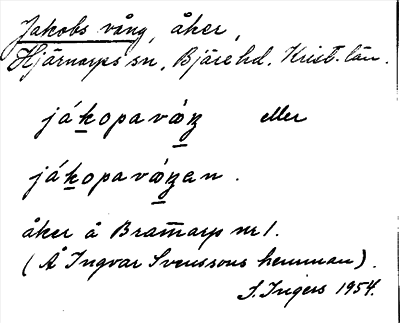 Jakobs vång, åker,
Hjärnarps sn, Bjäre hd. Krist. län.
jákopavåŋ eller
jákopavåŋan.
åker å Bram̄arp nr 1.
(Å Ingvar Svenssons hemman).
I. Ingers 1954.